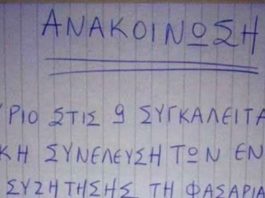 ΑΝΑΚΟΙΝΩΣΗ
ΥΡΙΟ ΣΤΙΣ 9 ΣΥΓΚΑΛΕΙΤΑ
ΚΗ ΣΥΝΕΛΕΥΣΗ ΤΩΝ ΕΝ
ΣΥΖΗΤΗΣΗΣ ΤΗ ΦΑΣΑΡΙΑ